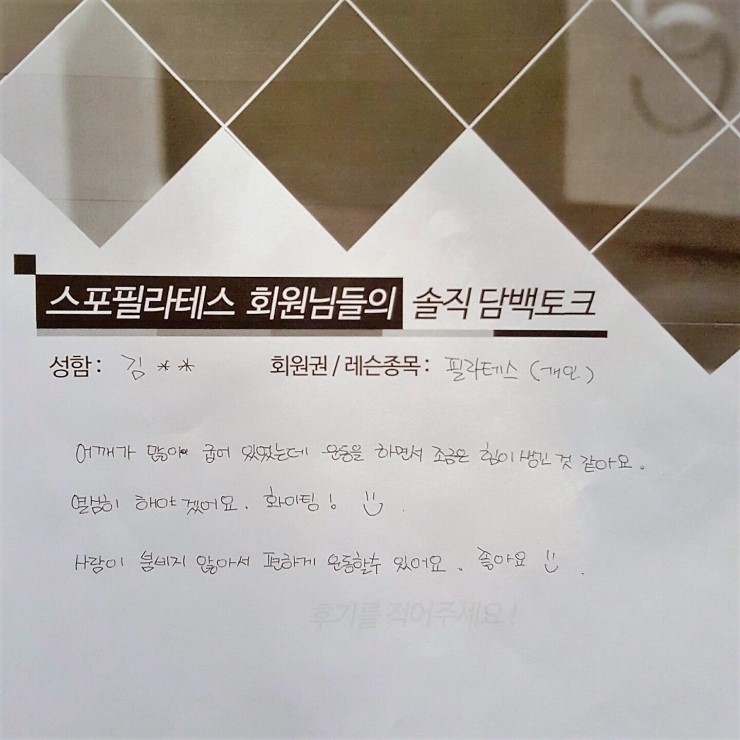 스포필라테스 회원님들의 솔직 담백토크
성함 : 김 ** 회원권 / 레슨종목 : 필라테스 (개인)
어깨가 많이 굽어 있었는데 운동을 하면서 조금은 힘이 생긴 것 같아요.
열심히 해야 겠어요. 화이팅!
사람이 붐비지 않아서 편하게 운동할수 있어요. 좋아요
후기를 적어주세요!